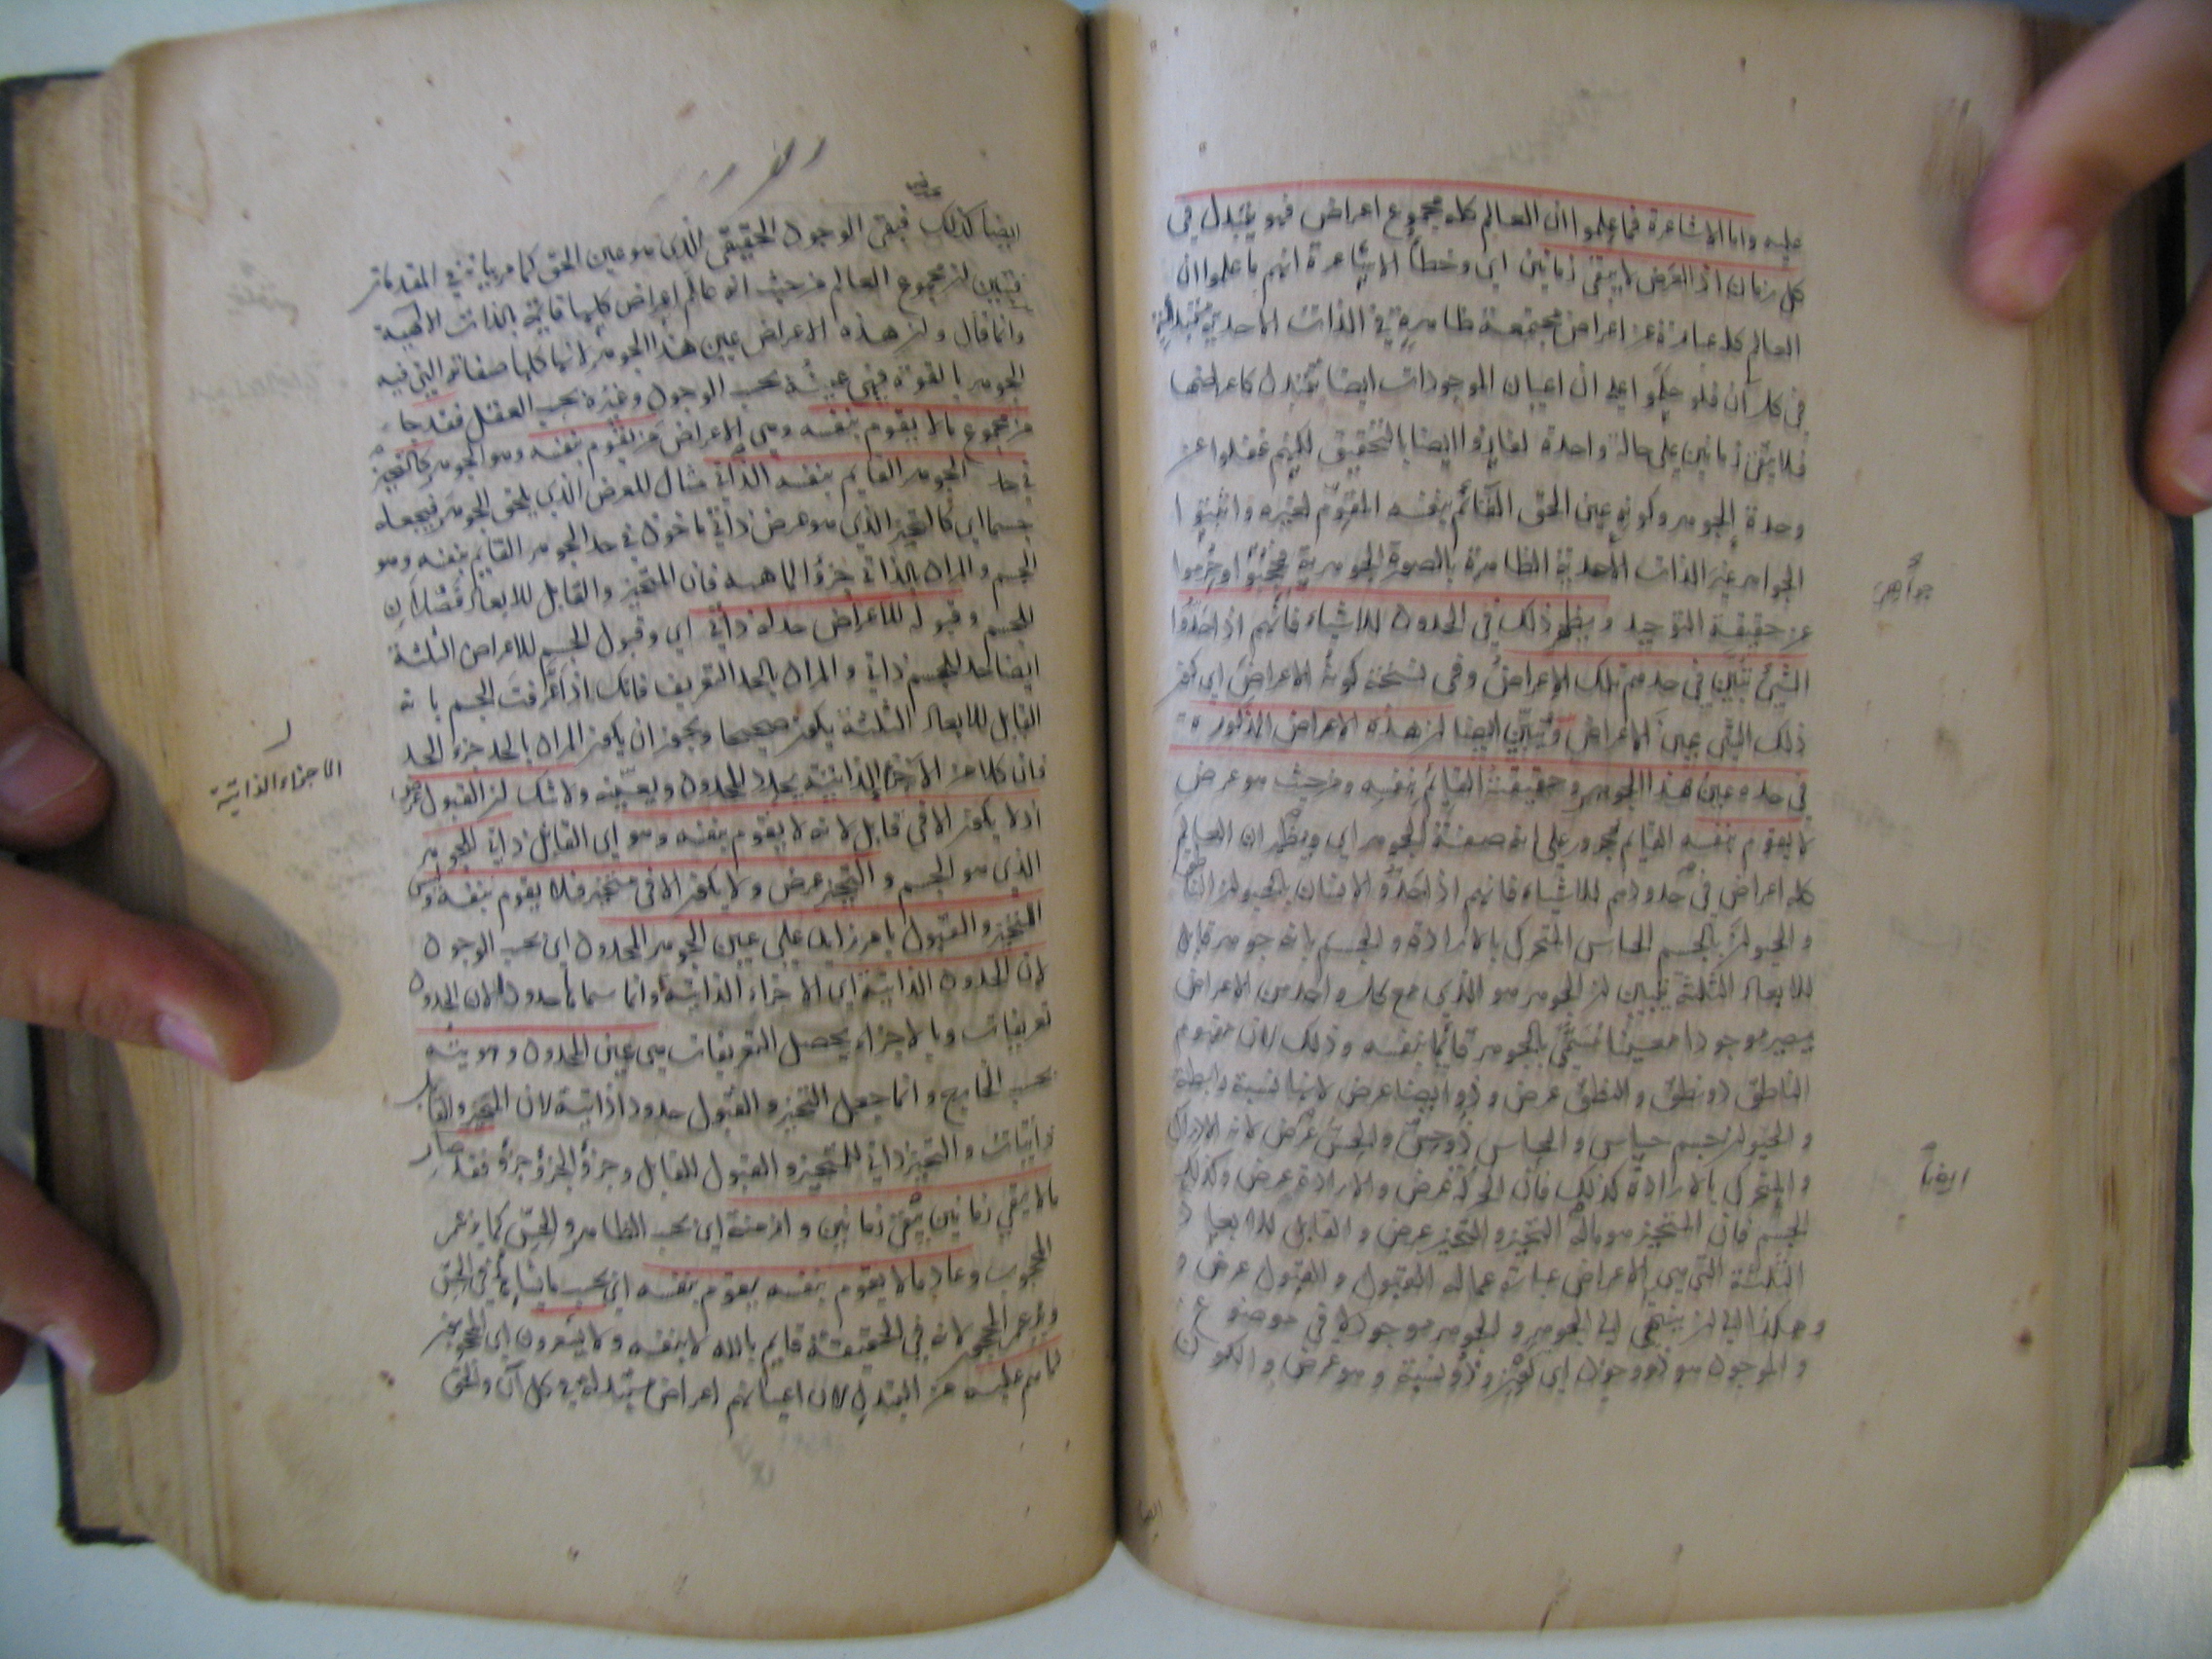 عليه واما الاشاعرة فما علموا ان العالم كله مجموع اعراض فهو يتبدل في
كل زمان اذ العرض لا يبقى زمانين اي وخطأ الاشاعرة انهم ما علموا ان
العالم كله عبارة عن اعراض مجتمعة ظاهرة في الذات الاحدية متبدلة
في كل آن فلو حكموا على ان اعيان الموجودات ايضا تتبدل كاعراضها
فلا يبقى زمانين على حالة واحدة لفازوا ايضا بالتحقيق لكنهم غفلوا عن
وحدة الجوهر وكونه عين الحق القائم بنفسه المقوم لغيره واثبتوا
الجواهر غير الذات الاحدية الظاهرة بالصورة الجوهرية فحجبوا وحرموا
جواهر
عن حقيقة التوحيد ويظهر ذلك في الحدود للاشياء فانهم اذا حدوا
الشئ تبين في حدهم تلك الاعراض وفي نسخة كونه الاعراض اي كون
ذلك الشئ عين الاعراض وتبين ايضا ان هذه الاعراض المذكورة
في حده عين هذا الجوهر وحقيقته القائم بنفسه ومن حيث هو عرض
لا يقوم بنفسه القائم مجرور على انه صفة للجوهر اي ويظهر ان العالم
كله اعراض في حدودهم للاشياء فانهم اذا حدوا الانسان بالحيوان الناطق
والحيوان بالجسم الحساس المتحرك بالارادة والجسم بانه جوهر قابل
للابعاد الثلثة فتبين ان الجوهر هو الذي مع كل واحد من الاعراض
يصير موجودا معينا مسمى بالجوهر قائما بنفسه وذلك لان مفهوم
الناطق ذو نطق والنطق عرض وذو ايضا عرض لانها نسبة رابطة
والحيوان جسم حساس والحساس ذو حس والحس عرض لانه الادراك
والمتحرك بالارادة كذلك فان الحركة عرض والارادة عرض وكذلك
ايضا
الجسم فان المتحيز هو ماله التحيز والتحيز عرض والقابل للابعاد
الثلثة التي هي الاعراض عبارة عما له القبول والقبول عرض و
هكذا الى ان ينتهي الى الجوهر والجوهر موجود لا في موضوع
والموجود هو ذو وجود اي كون وذو نسبة وهو عرض والكون
ايضا
ايضا كذلك فبقى الوجود الحقيقي الذي هو عين الحق كما مر بيانه في المقدمات
عرض
فتبين ان مجموع العالم من حيث انه عالم اعراض كلها قائمة بالذات الالهية
وانما قال وان هذه الاعراض عين هذا الجوهر لانها كلها صفاته التي فيه
الجوهر بالقوة فهي عينه بحسب الوجود وغيره بحسب العقل فقد جاء
من مجموع ما لا يقوم بنفسه وهي الاعراض من يقوم بنفسه وهو الجوهر كالتحيز
في حد الجوهر القائم بنفسه الذاتي مثال للعرض الذي يلحق الجوهر فيجعله
جسما اي كالتحيز الذي هو عرض ذاتي ماخوذ في حد الجوهر القائم بنفسه وهو
الجسم والمراد بالذاتي جزؤ الماهية فان المتحيز والقابل للابعاد فصلان
للجسم وقبوله للاعراض حد له ذاتي اي وقبول الجسم للاعراض الثلثة
ايضا حد للجسم ذاتي والمراد بالحد التعريف فانك اذا عرفت الجسم بانه
القابل للابعاد الثلثة يكون صحيحا ويجوز ان يكون المراد بالحد جزء الحد
فان كلا من الاجزاء الذاتية يحدد المحدود ويعينه ولا شك ان القبول عرض
الاجزاء الذاتية
اذ لا يكون الا في قابل لانه لا يقوم بنفسه وهو اي القابل ذاتي للجوهر
الذي هو الجسم والتحيز عرض ولا يكون الا في متحيز فلا يقوم بنفسه وليس
التحيز والقبول بامر زايد على عين الجوهر المحدود اي بحسب الوجود
لان الحدود الذاتية اي الاجزاء الذاتية وانما سماها حدودا لان الحدود
تعريفات وبالاجزاء يحصل التعريفات هي عين المحدود وهويته
بحسب الخارج وانما جعل التحيز والقبول حدودا ذاتية لان المتحيز والقابل
ذاتيات والتحيز ذاتي للمتحيز والقبول للقابل وجزؤ الجزؤ جزؤ فقد صار
ما لا يبقى زمانين يبقى زمانين وازمنة اي بحسب الظاهر والحس كما يزعم
المحجوب وعاد ما لا يقوم بنفسه يقوم بنفسه اي بحسب ما يشاهد في الحس
ويزعم المحجوب لانه في الحقيقة قايم بالله لا بنفسه ولا يشعرون اي المحجوبون
لما هم عليه من التبدل لان اعيانهم اعراض متبدلة في كل آن والحق